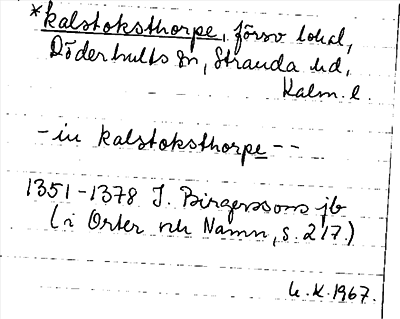 *kalstoksthorpe, försv lokal,
Döderhults sn, Stranda hd,
Kalm. l.
- in kalstoksthorpe - -
1351-1378 J. Birgerssons jb
(i Orter och Namn, s. 217.)
U.K. 1967.